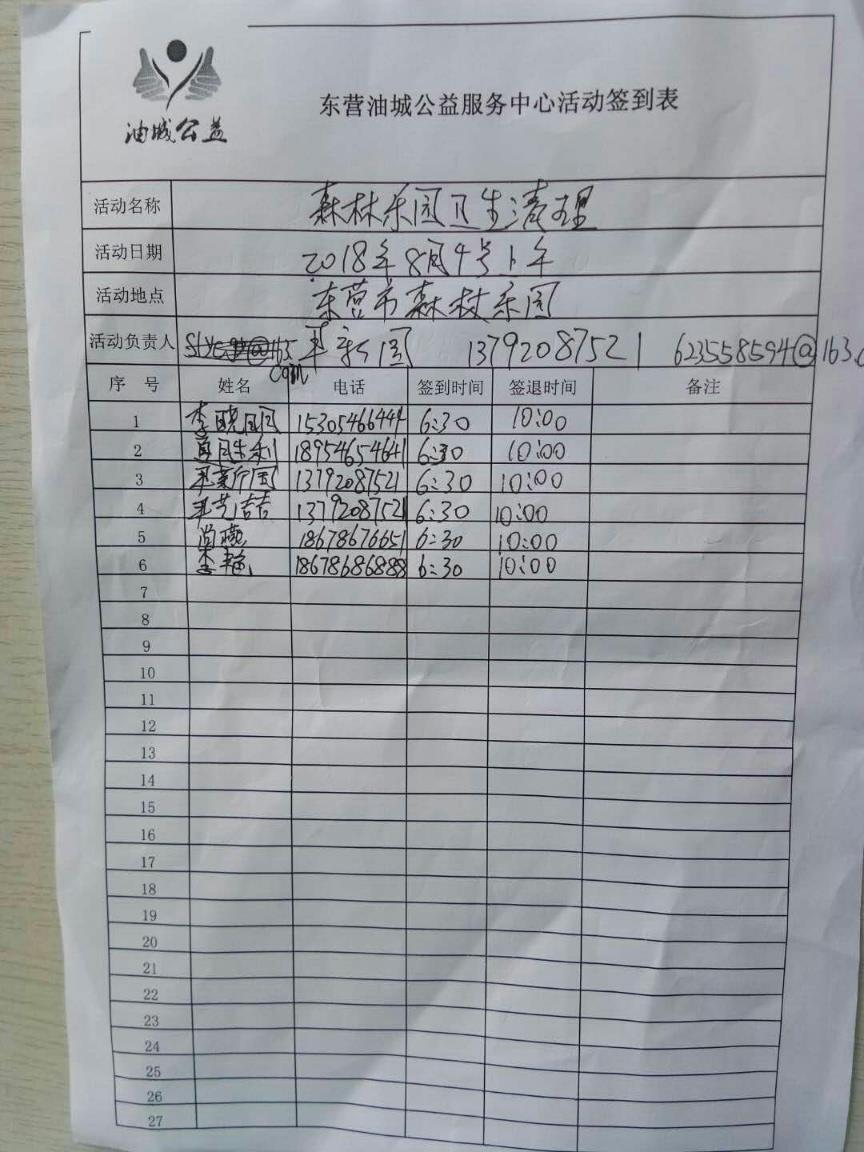 油城公益
东营油城公益服务中心活动签到表
活动名称 森林乐园卫生清理
活动日期 2018年8月4号上午
活动地点 东营市森林乐园
活动负责人 新国 13792087521 623558594@163.c
com
序 号 姓名 电话 签到时间 签退时间 备注
1 李晓凤 15305466441 6:30 10:00
2 18954654641 6:30 10:00
3 13792087521 6:30 10:00
4 13792087521 6:30 10:00
5 尚燕 18678676651 6:30 10:00
6 李艳 18678686888 6:30 10:00
7
8
9
10
11
12
13
14
15
16
17
18
19
20
21
22
23
24
25
26
27